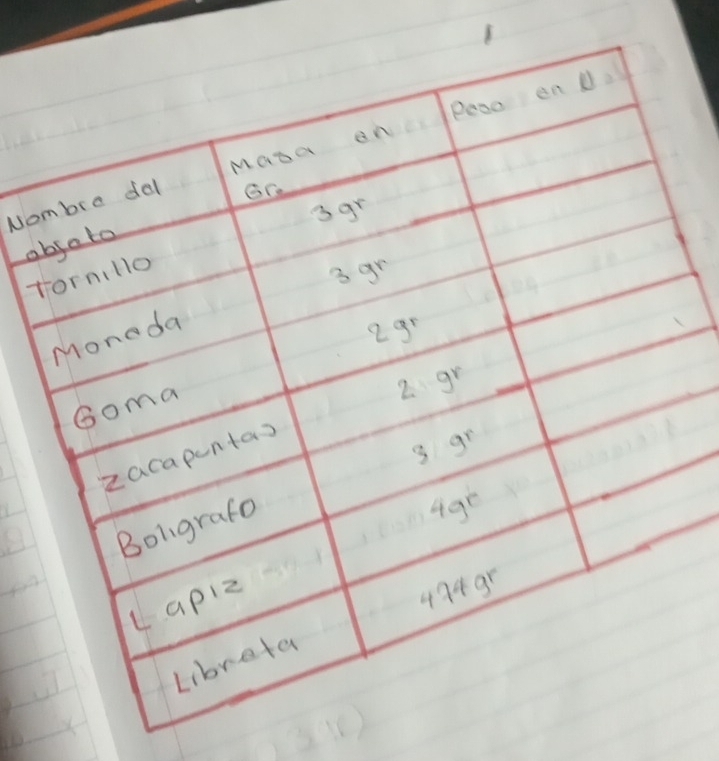 Nombre del objeto
Masa en Gr.
Peso en
Tornillo
3 gr
Moneda
3 gr
Goma
2 gr
zacapuntas
2 gr
Boligrafo
3 gr
Lapiz
4gr
Libreta
474 gr